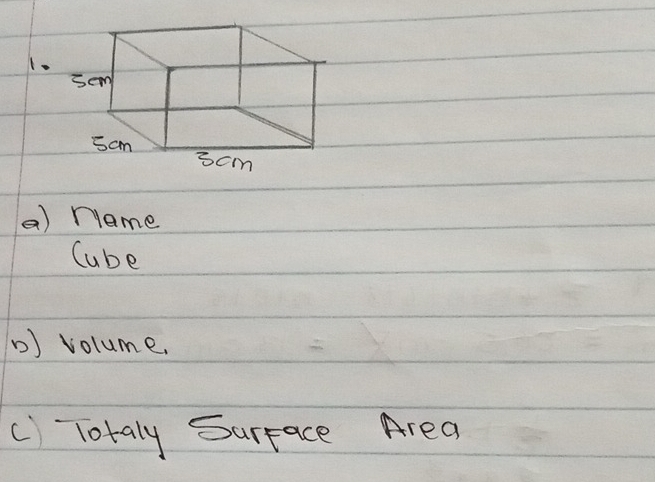 1.
5cm
5cm
5cm
a) Name
Cube
b) Volume.
c) Totaly Surface Area